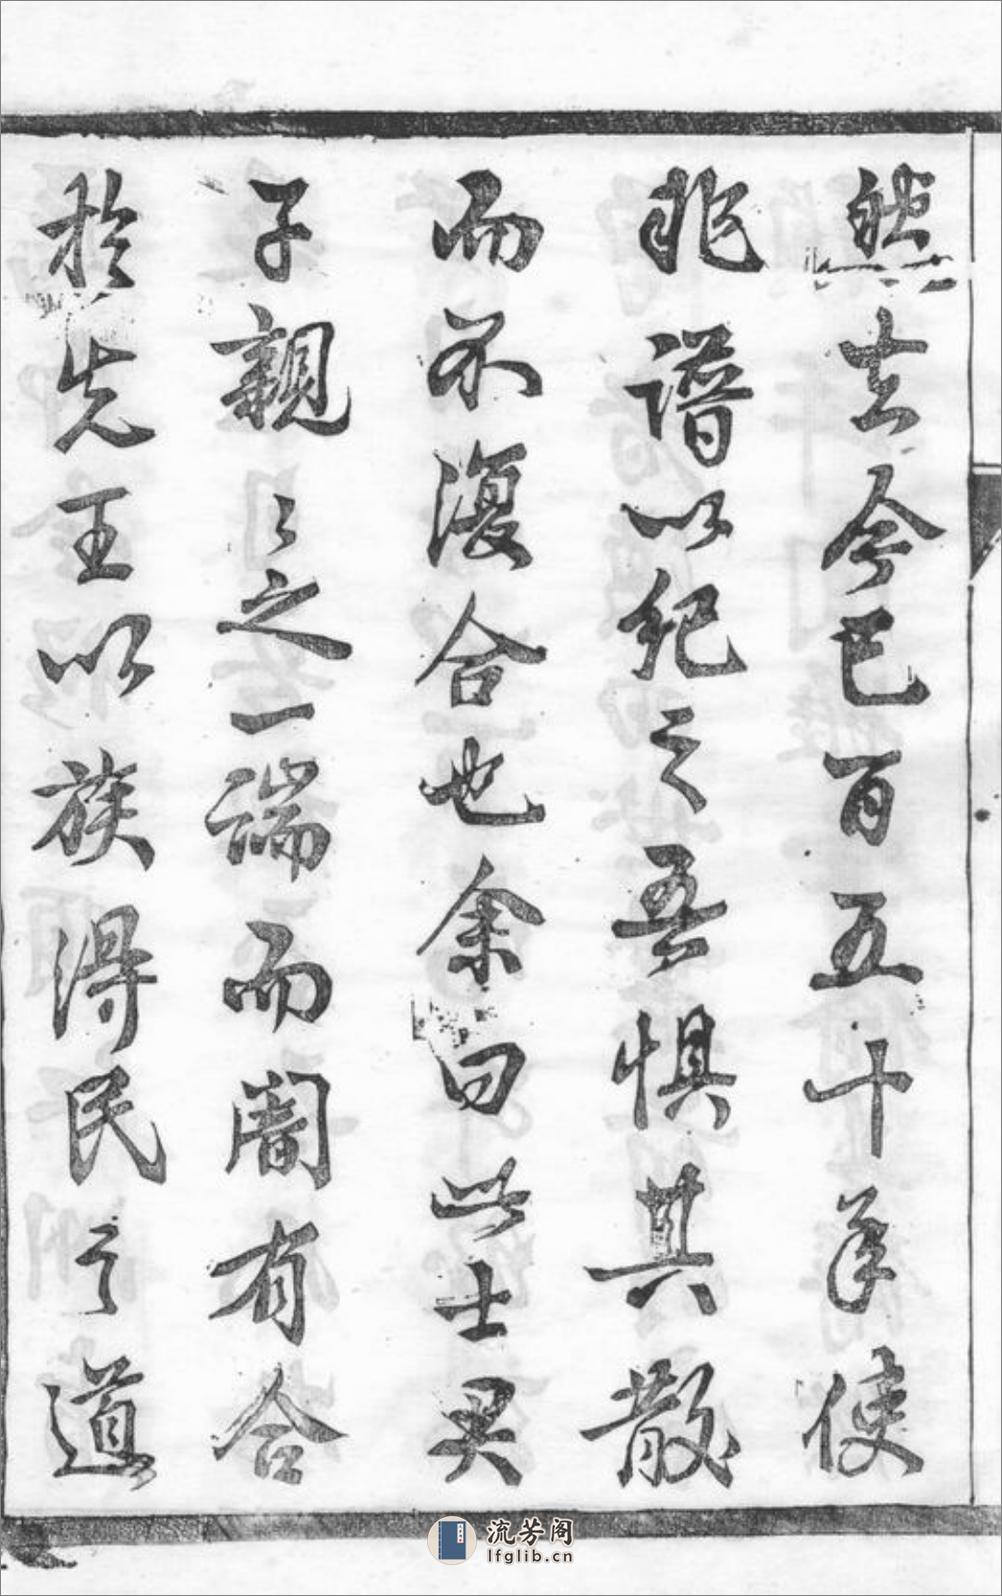 然去今已百五十年使
非譜以紀之吾懼其散
而不復合也余曰此士君
子親〻之一端而闇有合
於先王以族得民之道
流芳阁
lfglib.cn